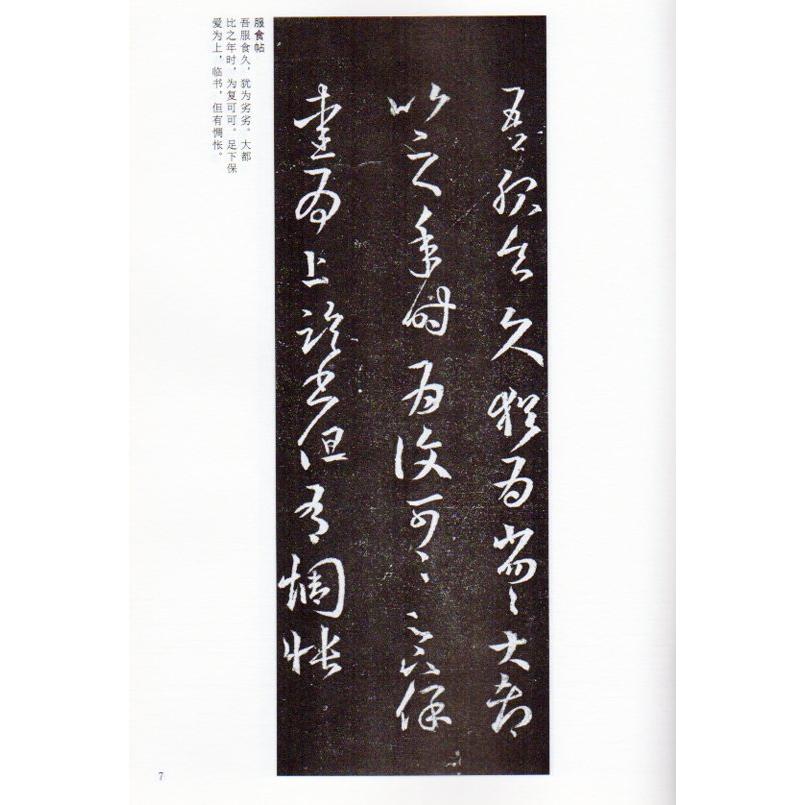 吾服食久猶為劣〻大都
比之年時為復可〻足下保
愛為上臨書但有惆悵
服食帖
吾服食久,犹为劣劣。大都
比之年时,为复可可。足下保
爱为上,临书,但有惆怅。
7